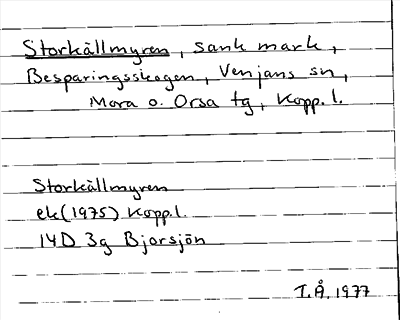 Storkällmyren, sank mark,
Besparingsskogen, Venjans sn,
Mora o. Orsa tg, Kopp. l.
Storkällmyren
ek (1975) Kopp. l.
14D 3g Bjorsjön
T.Å. 1977